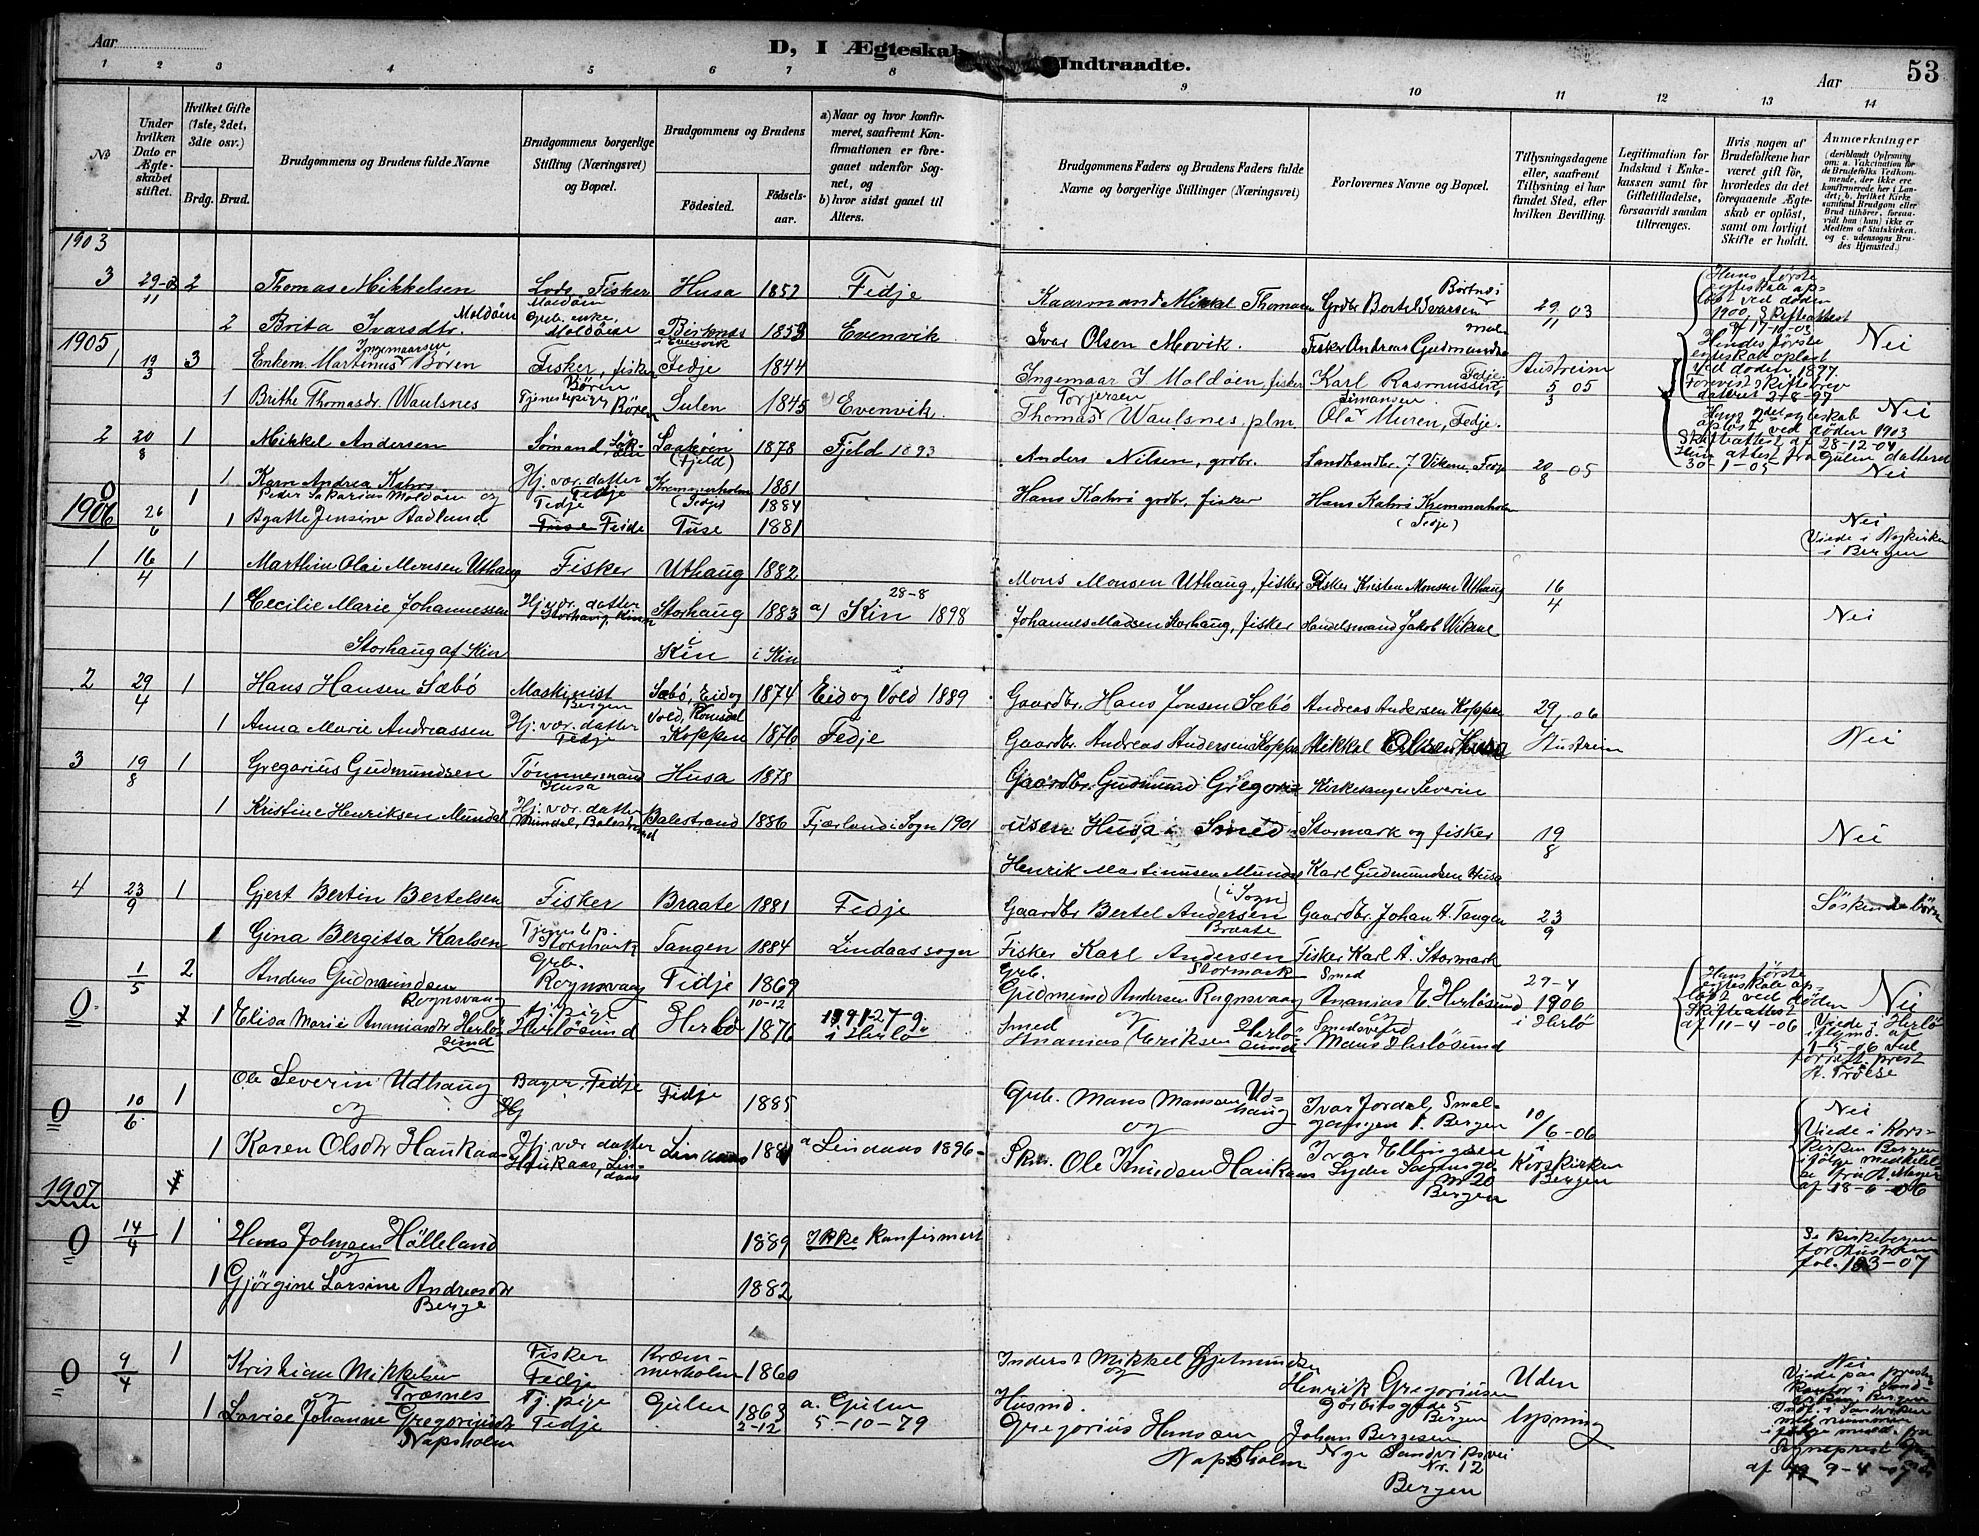 Aar
D, I Ægteskab Indtraadte.
Aar
53
1 2 3 4 5 6 7 8 9 10 11 12 13 14
No
Under hvilken Dato er Ægteskabet stiftet.
Hvilket Gifte (1ste, 2det, 3die osv.)
Brdg. Brud.
Brudgommens og Brudens fulde Navne
Brudgommens borgerlige Stilling (Næringsvei) og Bopæl.
Brudgommens og Brudens
Fødested.
Fødselsaar.
a) Naar og hvor konfirmeret, saafremt Konfirmationen er foregaaet udenfor Sognet, og
b) hvor sidst gaaet til Alters.
Brudgommens Faders og Brudens Faders fulde Navne og borgerlige Stillinger (Næringsvei)
Forlovernes Navne og Bopæl.
Tillysningsdagene eller, saafremt Tillysning ei har fundet Sted, efter hvilken Bevilling.
Legitimation for Indskud i Enkekassen samt for Giftetilladelse, forsaavidt saadan tiltrænges.
Hvis nogen af Brudefolkene har været gift før, hvorledes da det foregaaende Ægteskab er opløst, samt om lovligt Skifte er holdt.
Anmærkninger
(deriblandt Oplysning om: a. Vakcination for de Brudefolks Vedkommende, der ikke ere konfirmerede her i Landet; b. hvilket Kirkesamfund Brudgom eller Brud tilhører, forsaavidt han (hun) ikke er Medlem af Statskirken, og c. udensogns Brudes Hjemsted.)
1903
3 29/11-03 2 Thomas Mikkelsen Lods, Fisker Moldøen Husa 1852 Fedje Kaarmand Mikkel Thomasen Grdbr Bertel Ivarsen 29/11 03
Hans første egteskab opløst ved døden 1900, Skifteattest af 17-10-03
2 Brita Ivarsdtr. Moldøen Grb. enke, Moldøen Evenvik Ivar Olsen Movik. Fisker Andreas Gudmundsen
Hendes første egteskab opløst ved døden, 1897. Forevist skiftebrev dateret 2-8-97
Nei
1905
1 19/3 3 Enkem. Martinus Ingemaarsen Børen Fisker, fisker Børen Fedje 1844 Ingemaar J. Moldøen, fisker Karl Rasmussen, Fedje Austreim 5/3 05
Hans 2det egteskab opløst ved døden 1903 Skifteattest af 28-12-04
1 Brithe Thomasdr. Waulsnes Tjenestepige Børen Sulen 1845 Evenvik. Thomas Torjersen Waulsnes plm Ola Simansen Muren, Fedje. Nei
Hun attest fra Gulen dateret 30-1-05
2 20/8 1 Mikkel Andersen Sømand (Fjeld) 1878 Fjeld 1893 Anders Nilsen, grdbr. Landhandler J. Vikene, Fedje 20/8 -05 Nei
1 Karn Andrea Kahrs Hj. vær. datter Fedje Kremmerholm (Fedje) 1881 Hans Kahrs grdbr. fisker Hans Kahrs Kremmerholm (Fedje)
0 26/6 1 Peder Sakarias Moldøen og Fedje 1884
1 Agatte Jensine Aadlund Tuse 1881
Nei
Viede i Nykirken i Bergen
1906
1 16/4 1 Marthin Olai Monsen Uthaug Fisker Uthaug 1882 Mons Monsen Uthaug, fisker Fisker Kristen Monsen Uthaug 16/4
1 Cecilie Marie Johannessen Hj. vær. datter Storhaug, Kinn Storhaug 1883 a) Kin 28-8 1898 Johannes Madsen Storhaug, fisker Handelsmand Jakob Wikene Nei
Storhaug af Kin Kin i Kin
2 29/4 1 Hans Hansen Sæbö Maskinist Bergen Sæbö, Eid og 1874 Eid og Vold 1889 Gaardbr. Hans Jonsen Sæbö Andreas Andersen Koppen 29/4-06
1 Anna Marie Andreassen Hj. vær. datter Fedje Vold, Romsdal Koppen 1876 Fedje Gaardbr. Andreas Andersen Koppen Mikkal Olsen Husa Austreim Nei
3 19/8 1 Gregorius Gudmundsen Tønnermand Husa Husa 1878 Gaardbr. Gudmund Gregori- Kirkesanger Severin
1 Kristine Henriksen Mundal Hj. vær. datter Mundal, Balestrand Balestrand 1886 Fjærland i Sogn 1901 usen Husa Stormark og fisker 19/8 Nei
Henrik Martinusen Mundal (i Sogn) Karl Gudmundsen Husa
4 23/9 1 Gjert Bertin Bertelsen Fisker Braate 1881 Fedje Gaardbr Bertel Andersen Braate Gaardbr. Johan A. Tangen 23/9 Søskendebörn
1 Gina Bergitta Karlsen Tjenestep. Stormark Tangen 1884 Lindaas sogn Fisker Karl Andersen Stormark Fisker Karl A. Stormark
0 1/5 2 Anders Gudmundsen Rognsvaag Grb. Rognsvaag Fedje 1869 Grb. Gudmund Andersen Rognsvaag Smed Ananias E. Herlösund 29-4 1906 i Herlö
1 Elisa Marie Ananiasdtr Herlösund Herlösund Herlö 10-12 1876 i Herlö Smed Ananias Eriksen Herlösund Mans Herlösund
Hans første egteskab opløst ved døden Skifteattest af 11-4-06
Nei
Viede i Herlö
0 10/6 1 Ole Severin Udhaug og Bager, Fedje Fedje 1885 Grb. Mans Mansen Udhaug og Ivar Jordal, Smalgangen Bergen 10/6-06
1 Karen Olsdtr Haukaas Hj. vær datter Haukaas, Lindaas Lindaas a Lindaas 1896 Ole Knudsen Haukaas Ivar Ellingsen nr 20 Bergen Korskirken Bergen
Nei
Viede i Korskirken Bergen af 18-6-06
1907
0 14/4 1 Hans Johnsen Hölleland og 1889 Ikke konfirmert
1 Gjörgine Larsine Andreasdtr Berge 1882
Se kirkebogen for Austreim
0 9/4 1 Kristian Mikkelsen Træsnes og Fisker Fedje Kræmmerholm 1860 Mikkel Gjelmundsen Henrik Gregoriusen Bergen Uden lysning
1 Lovise Johanne Gregoriusdtr Napsholm Tj. pige Fedje Gulen 1863 2-12 a. Gulen 5-10-79 Husmd. Gregorius Hanssen Napsholm Johan Bergesen Nye Sandviksvei Nr. 12 Bergen
Nei
af 9-4-07